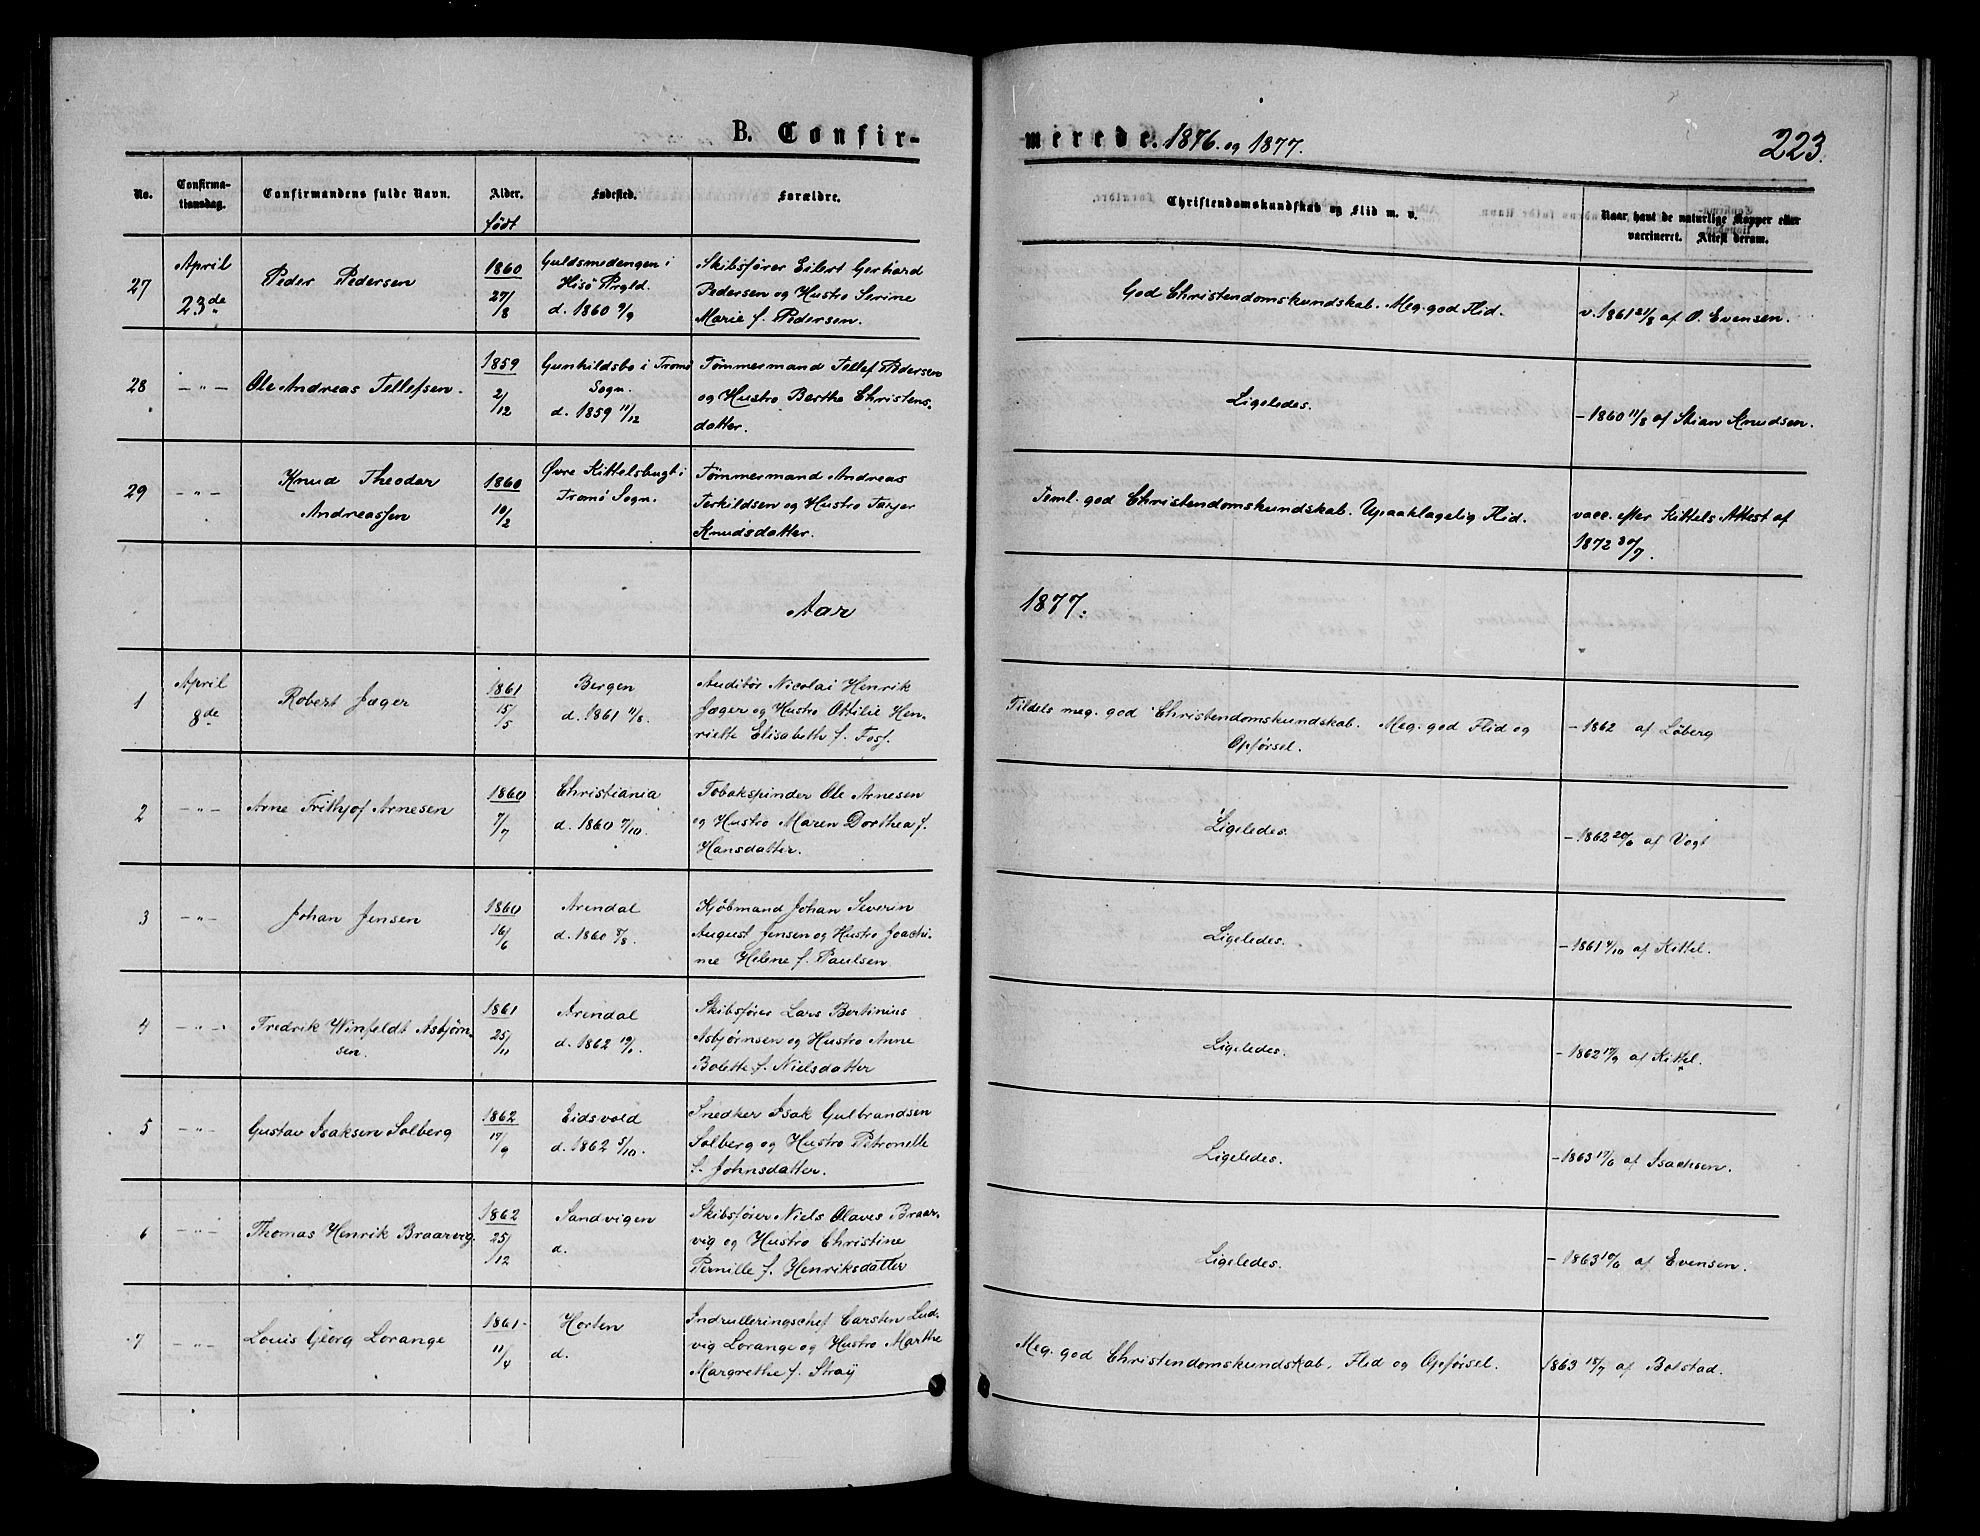 B. Confir-
merede. 1876. og 1877.
223.
No.
Confirma-
tionsdag.
Confirmandens fulde Navn.
Alder.
født
Fødested.
Forældre.
Christendomskundskab og Flid m. v.
Naar, havt de naturlige Kopper eller
vaccineret. Attest derom.
27
April
23de
Peder Pedersen
1860
27/8
Guldsmedengen i
Hisö Prgld.
d. 1860 9/9
Skibsfører Eilert Gerhard
Pedersen og Hustro Serine
Marie f. Pedersen.
God Christendomskundskab. Meg. god Flid.
v. 1861 21/8 af O. Evensen.
28
— " —
Ole Andreas Tellefsen.
1859
2/12
Gunhildsbo i Tromö
Sogn.
d. 1859 11/12
Tømmermand Tellef Pedersen
og Hustro Berthe Christens-
datter.
Ligeledes.
— 1860 11/8 af Stian Knudsen.
29
— " —
Knud Theodor
Andreassen
1860
10/2
Øvre Kittelsbugt i
Tromö Sogn.
Tømmermand Andreas
Terkildsen og Hustro Tarjer
Knudsdatter.
Teml. god Christendomskundskab. Upaaklagelig Flid.
vacc. efter Kittels Attest af
1872 30/7.
Aar
1877.
1
April
8de
Robert Jæger
1861
15/5
Bergen
d. 1861 11/8.
Auditör Nicolai Henrik
Jæger og Hustro Ottilie Hen-
riette Elisabeth f. Foss.
Tildels meg. god Christendomskundskab. Meg. god Flid og
Opførsel.
— 1862 af Löberg
2
— " —
Arne Frithjof Arnesen
1860
7/7
Christiania
d. 1860 7/10.
Tobakspinder Ole Arnesen
og Hustro Maren Dorthea f.
Hansdatter.
Ligeledes.
— 1862 20/6 af Vogt
3
— " —
Johan Jensen
1860
16/6
Arendal
d. 1860 8/8.
Kjøbmand Johan Severin
August Jensen og Hustro Joachi-
me Helene f. Paulsen
Ligeledes.
— 1861 4/10 af Kittel.
4
— " —
Fredrik Winfeldt Asbjørn-
sen.
1861
25/11
Arendal
d. 1862 19/1.
Skibsfører Lars Bertinius
Asbjørnsen og Hustro Anne
Bolette f. Nielsdatter
Ligeledes.
— 1862 17/9 af Kittel.
5
— " —
Gustav Isaksen Solberg
1862
17/9
Eidsvold
d. 1862 5/10.
Snedker Isak Gulbrandsen
Solberg og Hustro Petronelle
f. Johnsdatter.
Ligeledes.
— 1863 17/6 af Isachsen.
6
— " —
Thomas Henrik Braarvig.
1862
25/12
Sandvigen
d.
Skibsfører Niels Olaves Braar-
vig og Hustro Christine
Pernille f. Henriksdatter
Ligeledes.
— 1863 10/6 af Evensen.
7
— " —
Louis Georg Lorange
1861
11/4
Horten
d.
Indrulleringschef Carsten Lud-
vig Lorange og Hustro Marthe
Margrethe f. Straÿ
Meg. god Christendomskundskab. Flid og Opførsel.
1863 18/7 af Bolstad.